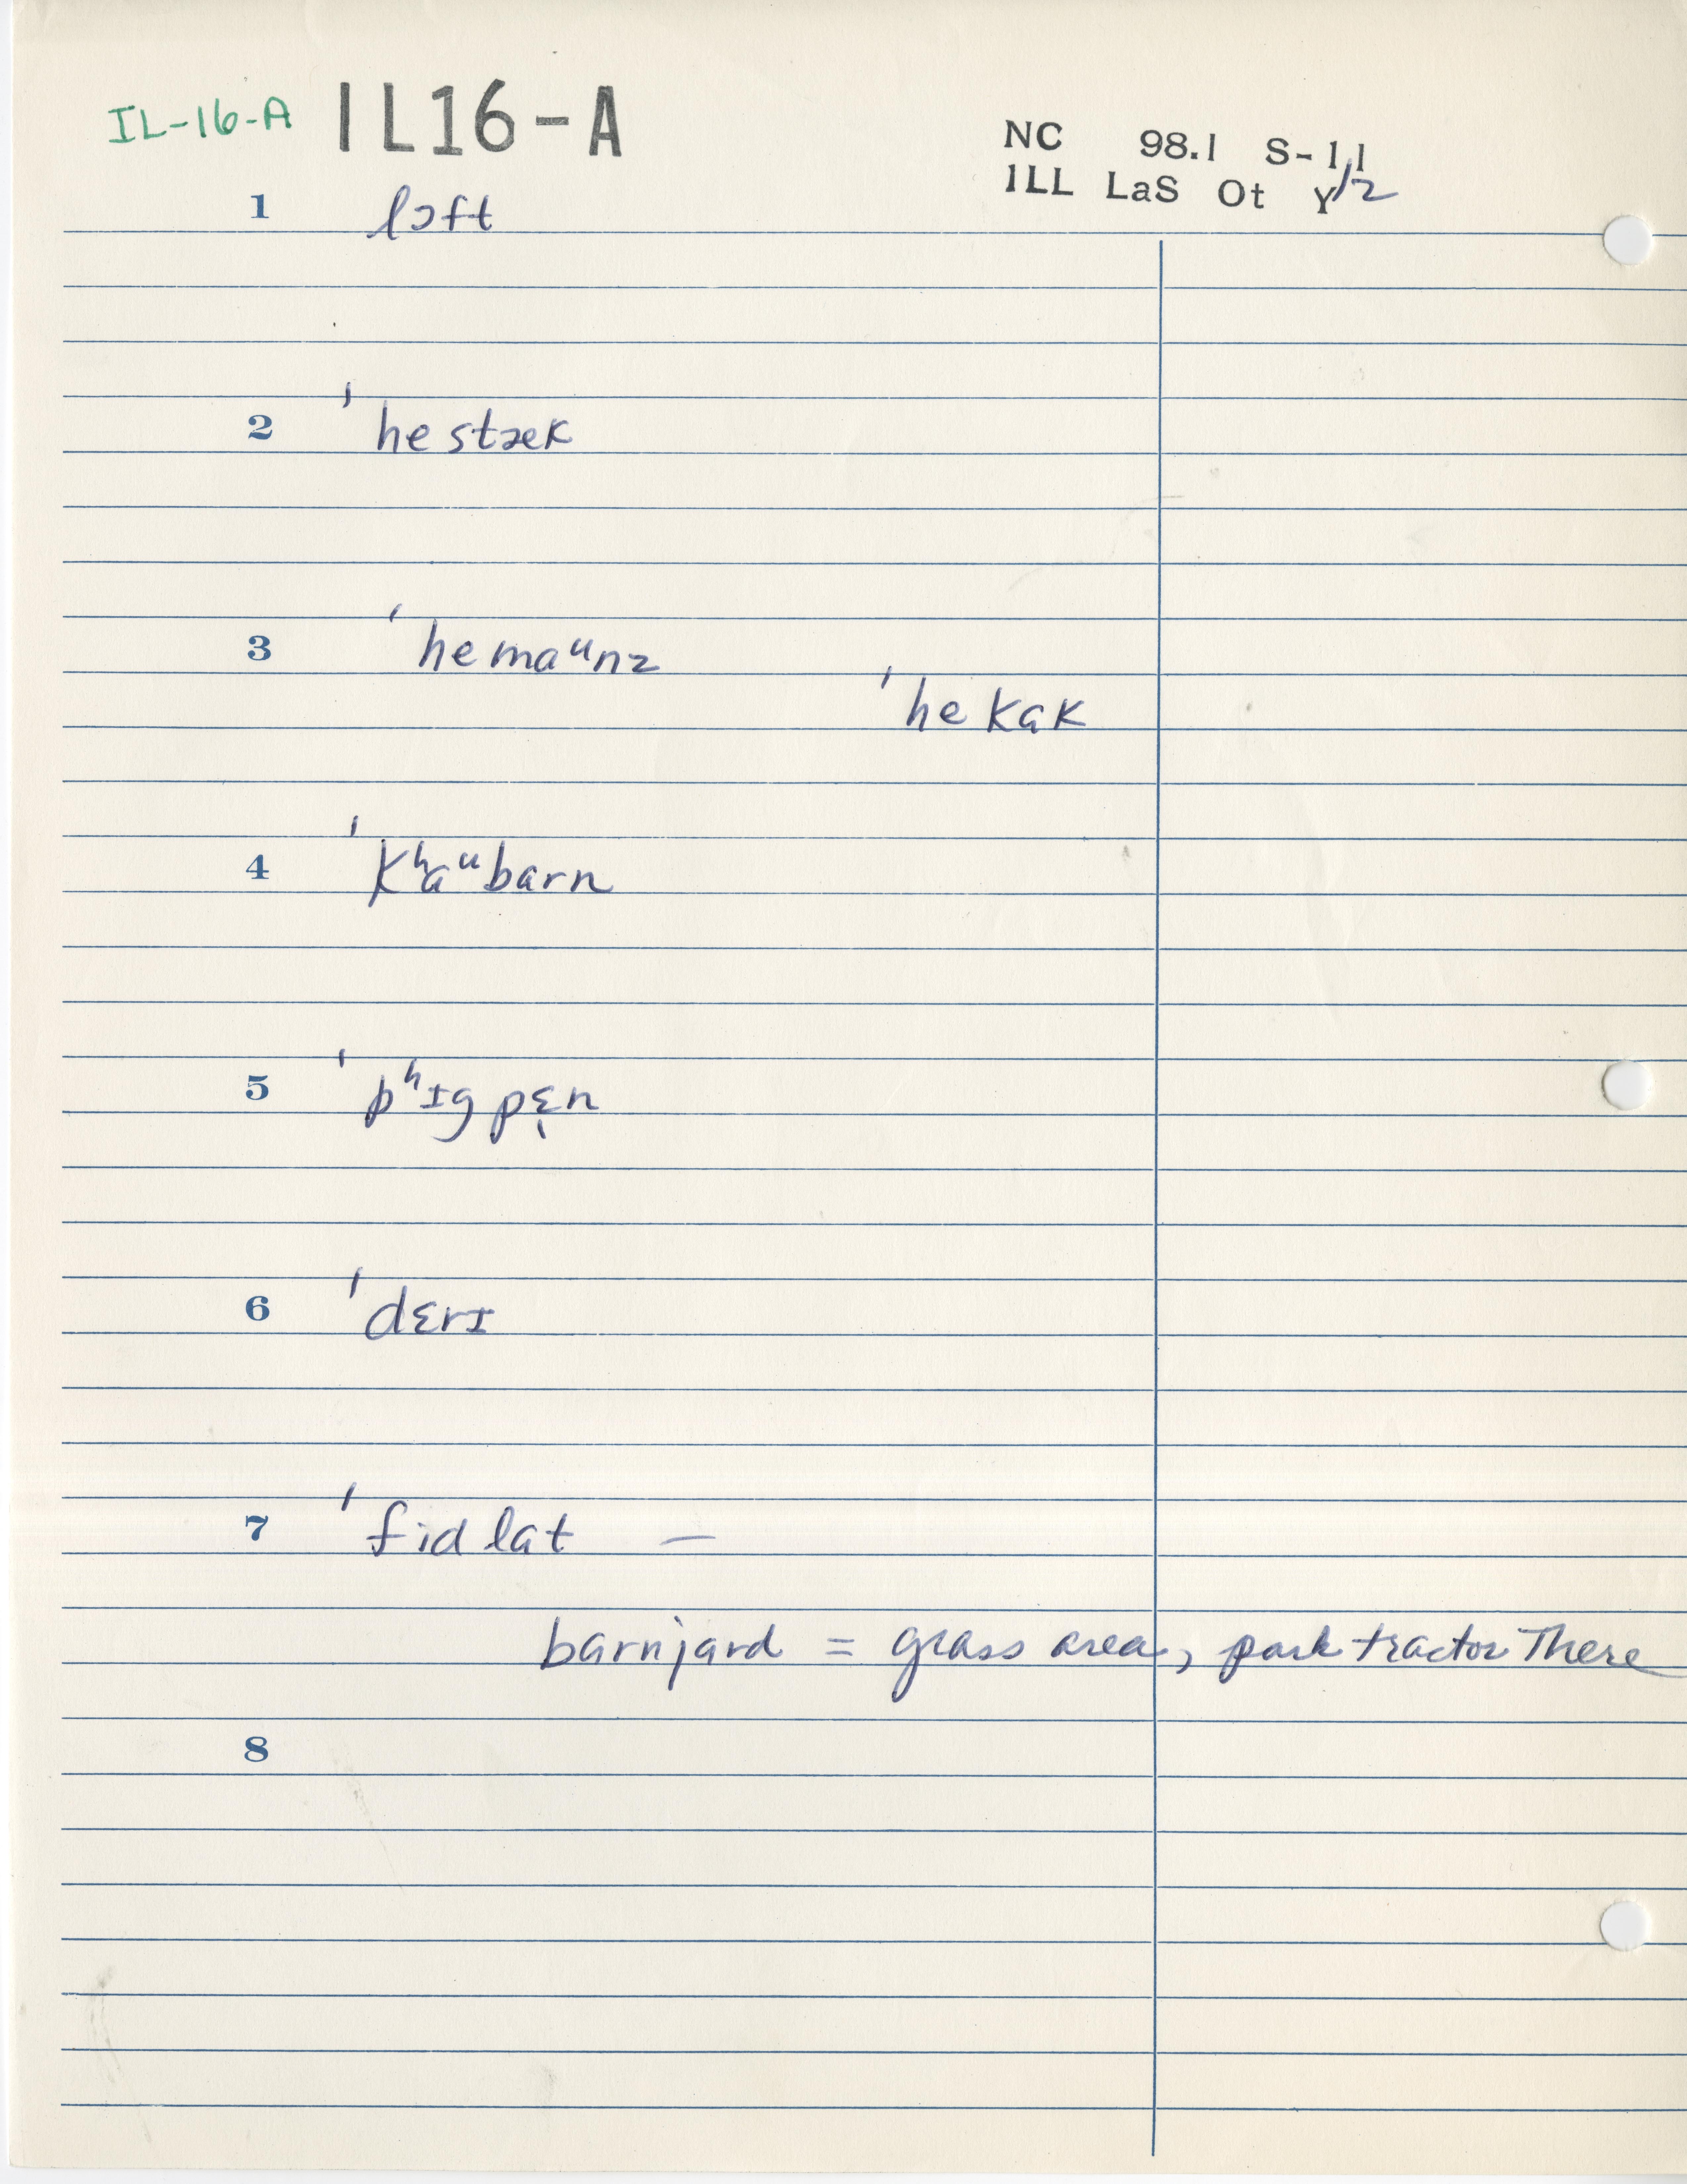 IL-16-A IL16-A
NC 98.1 S-1/1
ILL LaS Ot Y/2
1 lɔft
2 ˈhestæk
3 ˈhemaᵘnz
ˈhekɑk
4 ˈkʰɑᵘbarn
5 ˈpʰɪgpɛ̩n
6 ˈdɛrɪ
7 ˈfidlɑt —
barnjard = grass area, park tractor There
8